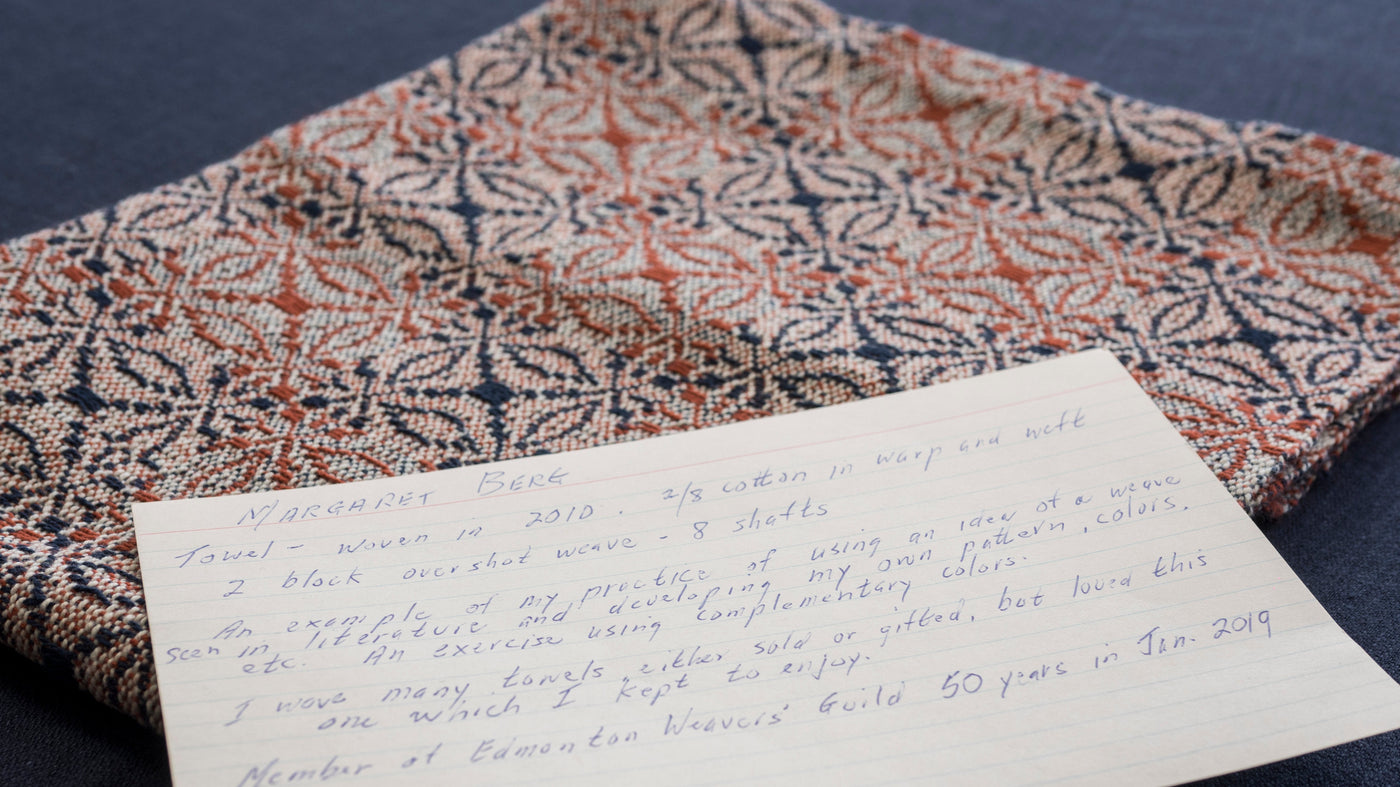 MARGARET BERG
Towel - woven in 2010. 2/8 cotton in warp and weft
2 block overshot weave - 8 shafts
An example of my practice of using an idea of a weave
seen in literature and developing my own pattern, colors,
etc. An exercise using complementary colors.
I wove many towels either sold or gifted, but loved this
one which I kept to enjoy.
Member of Edmonton Weavers' Guild 50 years in Jan. 2019